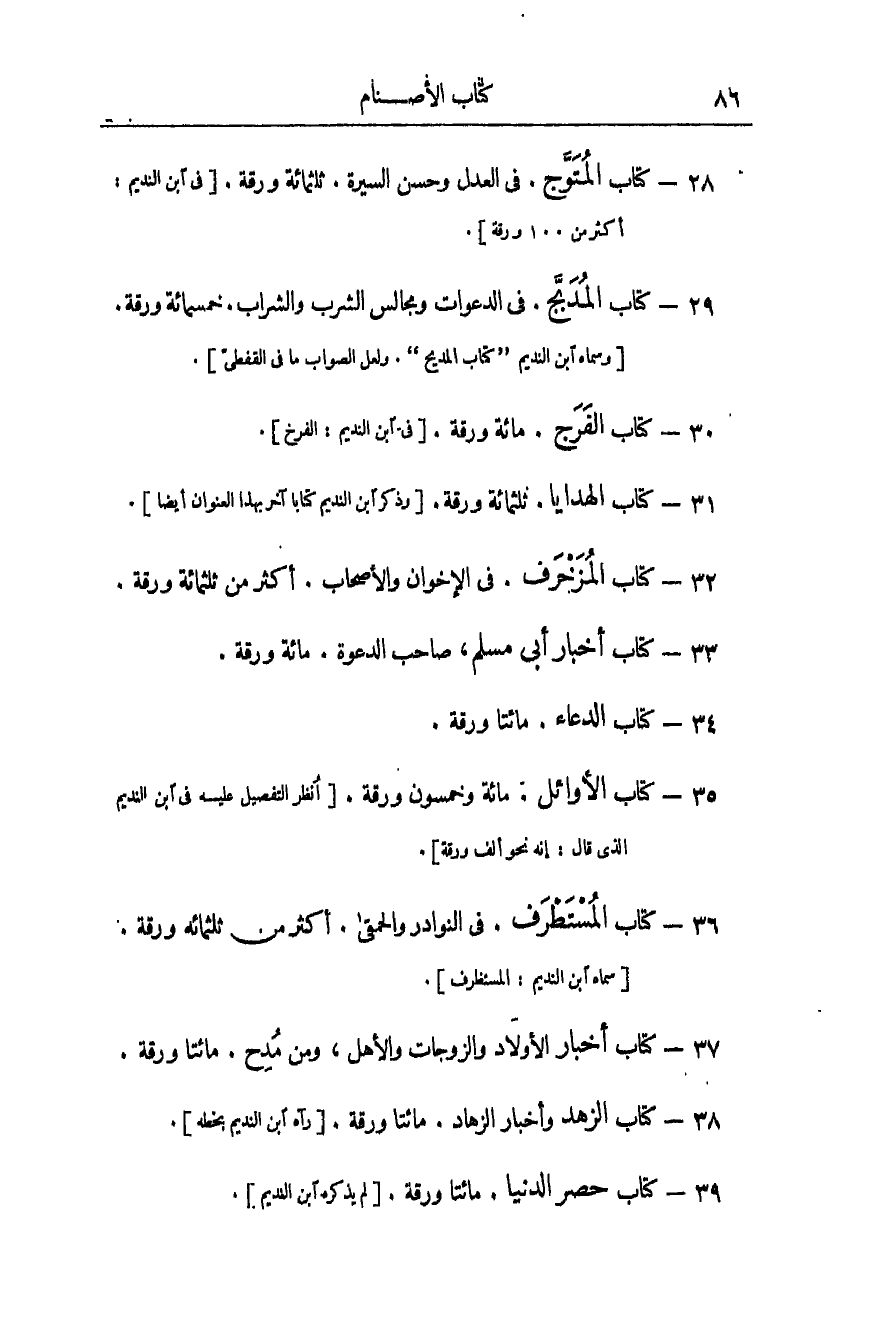 ٨٦ كتاب الأصنام
٢٨ — كتاب المُتَوَّج . فى العدل وحسن السيرة . ثلثمائة ورقة . [ فى آبن النديم :
أكثر من ١٠٠ ورقة ] .
٢٩ — كتاب المُدَبَّج . فى الدعوات ومجالس الشرب والشراب . خمسمائة ورقة .
[ وسماه آبن النديم ”كتاب المديح“ . ولعل الصواب ما فى القفطىّ ] .
٣٠ — كتاب الفَرَج . مائة ورقة . [ فى آبن النديم : الفرخ ] .
٣١ — كتاب الهدايا . ثلثمائة ورقة . [ وذكر آبن النديم كتابا آخر بهذا العنوان أيضا ] .
٣٢ — كتاب المُزَخْرَف . فى الإخوان والأصحاب . أكثر من ثلثمائة ورقة .
٣٣ — كتاب أخبار أبى مسلم، صاحب الدعوة . مائة ورقة .
٣٤ — كتاب الدعاء . مائتا ورقة .
٣٥ — كتاب الأوائل . مائة وخمسون ورقة . [ اُنظر التفصيل عليه فى آبن النديم
الذى قال : إنه نحو ألف ورقة ] .
٣٦ — كتاب المُسْتَظْرَف . فى النوادر والحمقىٰ . أكثر من ثلثمائه ورقة .
[ سماه آبن النديم : المستظرف ] .
٣٧ — كتاب أخبار الأولاد والزوجات والأهل ، ومن مُدِح . مائتا ورقة .
٣٨ — كتاب الزهد وأخبار الزهاد . مائتا ورقة . [ رآه آبن النديم بخطه ] .
٣٩ — كتاب حصر الدنيا . مائتا ورقة . [ لم يذكره آبن النديم ] .